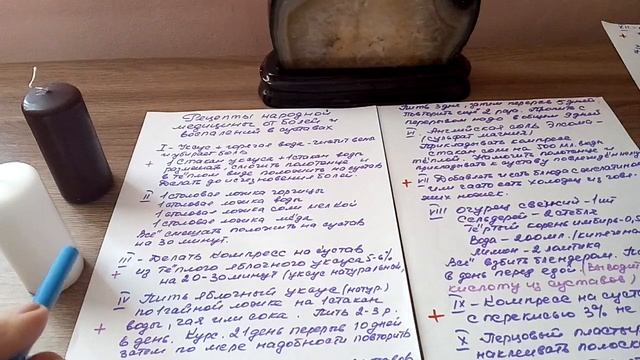 Рецепты народной
медицины от болей и
воспалений в суставах
I - Уксус + горячая вода - чистит вена
и убирает боль
+ 1 стакан уксуса + 1 стакан воды
размешать, смочить полотенце и
в тёплом виде положить на сустав
делать до исчезновения болей.
II 1 столовая ложка горчицы
1 столовая ложка воды
1 столовая ложка соли мелкой
1 столовая ложка мёда
Всё смешать положить на сустав
на 30 минут.
III - Делать компресс на сустав
+ из тёплого яблочного уксуса 5-6%
на 20-30 минут (уксус натуральной)
IV Пить яблочный уксус (натур.)
по 1 чайной ложке на 1 стакан
+ воды, чая или сока. Пить 2-3 р.
в день. Курс. 21 день перерыв 10 дней
затем по мере надобности повторить
суставов
Пить 3 дня, затем перерыв 5 дней
повторить еще 2 раз.
перерывом надо в общем 9 дней
VI Английская соль Эпсома
(сульфат магния)
Прикладовать компресс
стакан соли на 500 мл. воды
тёплой. Намочить полотенце и
прикладовать к суставу
+ VII Добавляте есть блюда с желатином
чем чаото есть холодец из говя-
жих ножек.
VIII Огурец свежий - 1 шт
Сельдерей - 2 стебля
Тёртый корень имбиря - 0,5
Вода - 200 мл. (кипячёная
Лимон - 2 ломтика
Всё взбить блендерам. П
в день перед едой. (выводит
кислоту из суставов)
+ IX - Компресс на суста
с перекисью 3% не
X - Перцовый пластырь
наклеивать полоса
XII -
+